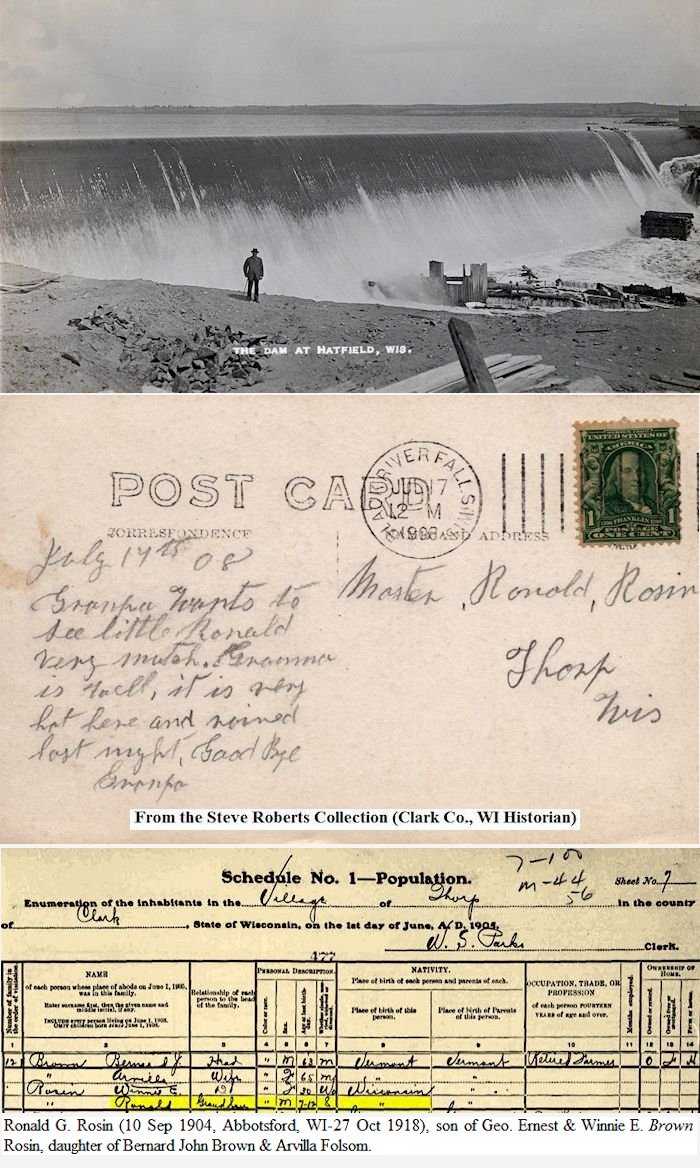 THE DAM AT HATFIELD, WIS.
POST CARD
LADD RIVER FALLS. WIS.
JUL 17
12 M
1908
SERIES 1902
UNITED STATES OF AMERICA
1 FRANKLIN
POSTAGE
ONE CENT
CORRESPONDENCE
NAME AND ADDRESS
July 17th 08
Granpa Wants to
see little Ronald
very mutch. Granma
is well, it is very
hot here and rained
last night, Good Bye
Granpa
Master, Ronald, Rosin
Thorp
Wis
From the Steve Roberts Collection (Clark Co., WI Historian)
7-100
m-44
56
Schedule No. 1—Population.
Sheet No. 7
Enumeration of the inhabitants in the Village of Thorp in the county
of Clark, State of Wisconsin, on the 1st day of June, A. D. 1905.
W. S. Parks Clerk.
177
Number of family in the order of visitation.
NAME
of each person whose place of abode on June 1, 1905, was in this family.
Enter surname first, then the given name and middle initial, if any.
INCLUDE every person living on June 1, 1905. OMIT children born since June 1, 1905.
Relationship of each person to the head of the family.
PERSONAL DESCRIPTION.
Color or race.
Sex.
Age at last birthday.
NATIVITY.
Place of birth of each person and parents of each.
Place of birth of this person.
Place of birth of Parents of this person.
OCCUPATION, TRADE, OR PROFESSION
of each person FOURTEEN YEARS of age and over.
Months employed.
OWNERSHIP OF HOME.
Owned or rented.
Owned free or mortgaged.
Farm or house.
1 2 3 4 5 6 7 8 9 10 11 12 13 14
Brown Bernard J. Head " M 63 m Vermont Vermont Retired Farmer O F H
" Arvilla Wife " F 65 m " "
Rosin Winnie E. " F 30 Wisconsin "
" Ronald Grandson " M 7-12 S "
Ronald G. Rosin (10 Sep 1904, Abbotsford, WI-27 Oct 1918), son of Geo. Ernest & Winnie E. Brown
Rosin, daughter of Bernard John Brown & Arvilla Folsom.